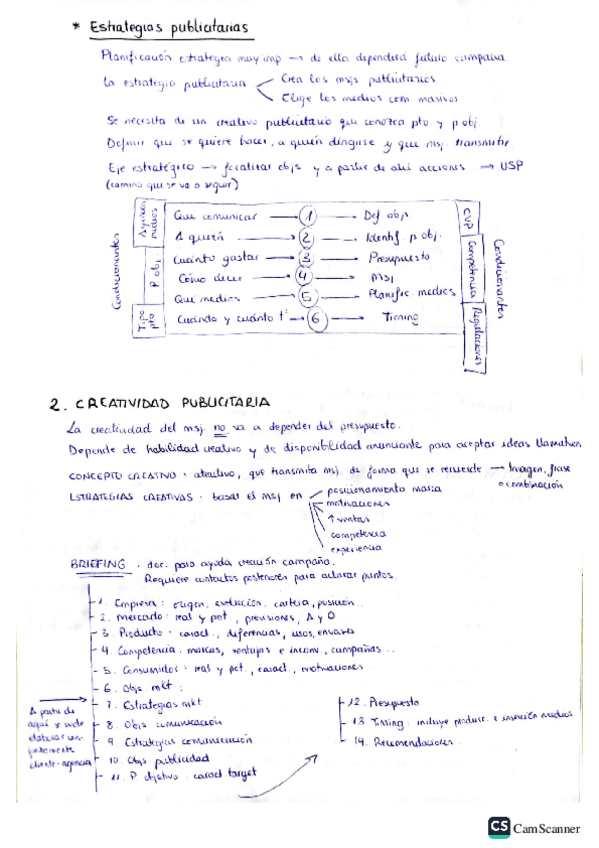 * Estrategias publicitarias
Planificación estrategia muy imp → de ella dependerá futuro campaña
La estrategia publicitaria
Crea los msjs publicitarios
Elige los medios com masivos
Se necesita de un creativo publicitario que conozca pto y p obj.
Definir que se quiere hacer, a quién dirigirse y que msj. transmitir
Eje estratégico → focalizar objs y a partir de ahí acciones → USP
(camino que se va a seguir)
Condicionantes
Agencia medios
P obj.
Tipo pto
Que comunicar → 1 → Def objs
A quién → 2 → Identif. p obj.
Cuánto gastar → 3 → Presupuesto
Cómo decir → 4 → MSJ
Que medios → 5 → Planific. medios
Cuándo y cuánto tº → 6 → Timing
CVP
Competencia
Regulaciones
Condicionantes
2. CREATIVIDAD PUBLICITARIA
La creatividad del msj no va a depender del presupuesto.
Depende de habilidad creativo y de disponibilidad anunciante para aceptar ideas llamativas
CONCEPTO CREATIVO: atractivo, que transmita msj. de forma que se recuerde → Imagen, frase
o combinación
ESTRATEGIAS CREATIVAS: basar el msj en
posicionamiento marca
motivaciones
↑ ventas
competencia
experiencia
BRIEFING: doc. para ayuda creación campaña.
Requiere contactos posteriores para aclarar puntos.
1. Empresa: origen, evolución, cartera, posición..
2. Mercado: real y pot., previsiones, A y O
3. Producto: caract., diferencias, usos, envases
4. Competencia: marcas, ventajas e inconv., campañas..
5. Consumidor: real y pot., caract., motivaciones
6. Objs mkt:
7. Estrategias mkt
8. Objs comunicación
9. Estrategias comunicación
10. Objs publicidad
11. P objetivo: caract target
A partir de
aquí se suele
elaborar con-
juntamente
cliente-agencia
12. Presupuesto
13 Timing: incluye producc. e inserción medios
14. Recomendaciones.
CS CamScanner